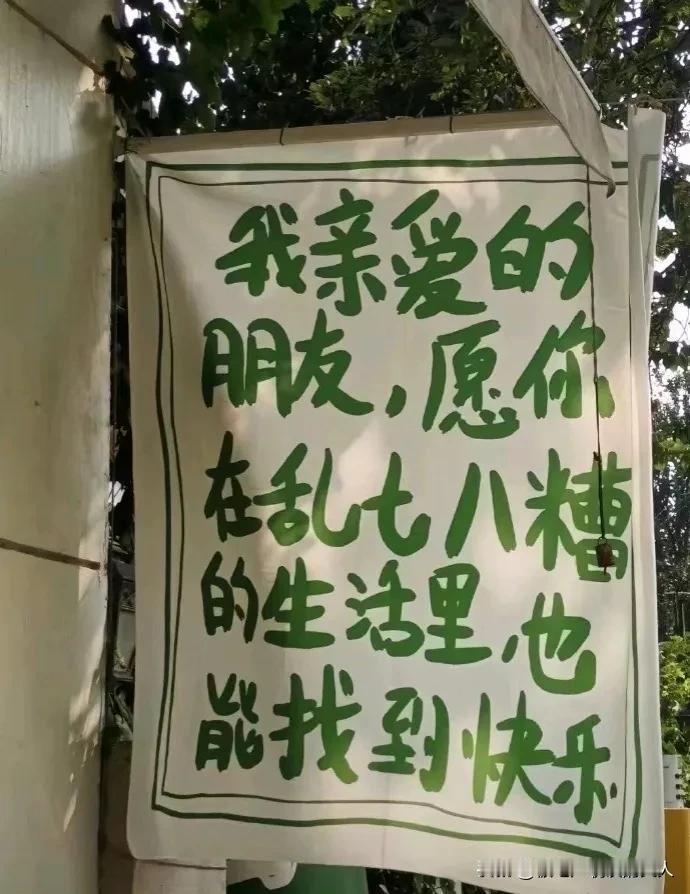 我亲爱的
朋友，愿你
在乱七八糟
的生活里，也
能找到快乐